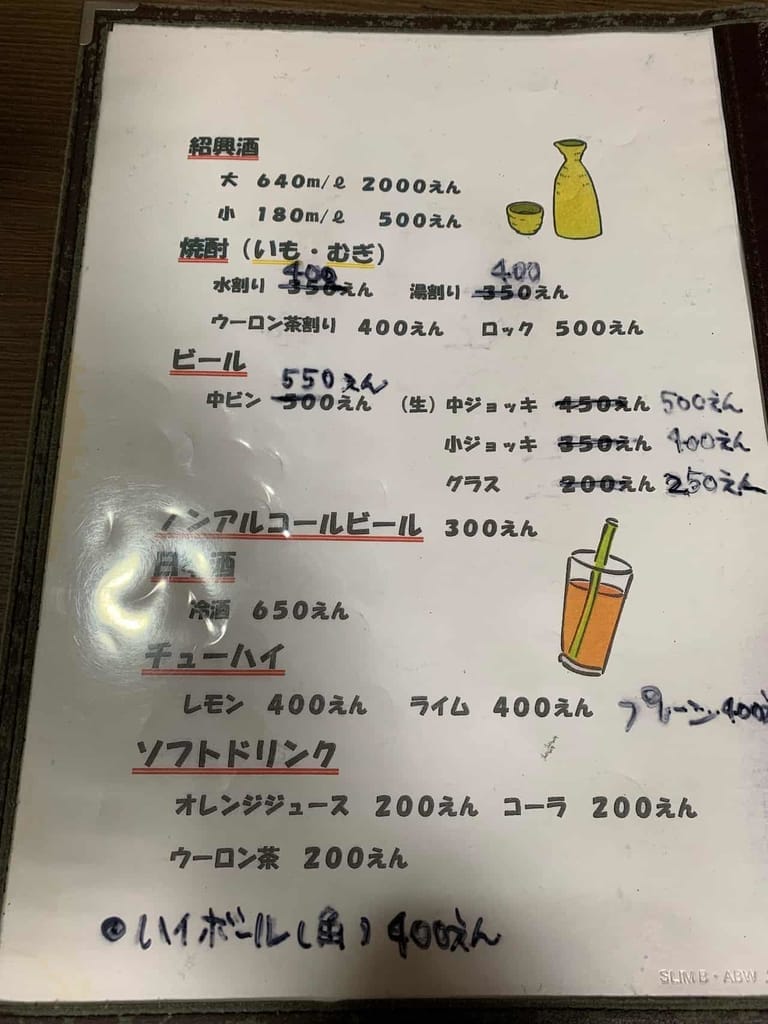 紹興酒
大 640m/ℓ 2000えん
小 180m/ℓ 500えん
焼酎(いも・むぎ)
400 400
水割り 350えん 湯割り 350えん
ウーロン茶割り 400えん ロック 500えん
ビール
550えん
中ビン 500えん (生)中ジョッキ 450えん 500えん
小ジョッキ 350えん 400えん
グラス 200えん 250えん
ノンアルコールビール 300えん
日本酒
冷酒 650えん
チューハイ
レモン 400えん ライム 400えん プレーン 400え
ソフトドリンク
オレンジジュース 200えん コーラ 200えん
ウーロン茶 200えん
●ハイボール(角) 400えん
SLIM B・ABW